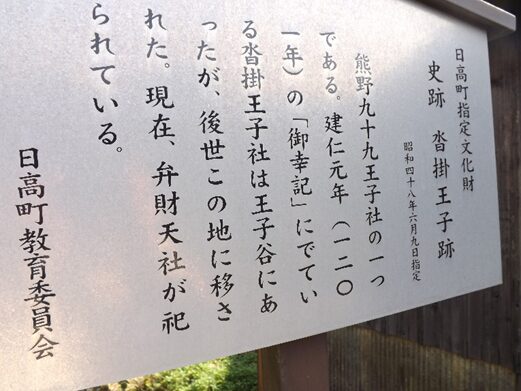 日高町指定文化財
史跡 沓掛王子跡
昭和四十八年六月九日指定
熊野九十九王子社の一つ
である。建仁元年（一二〇
一年）の「御幸記」にでてい
る沓掛王子社は王子谷にあ
ったが、後世この地に移さ
れた。現在、弁財天社が祀
られている。
日高町教育委員会